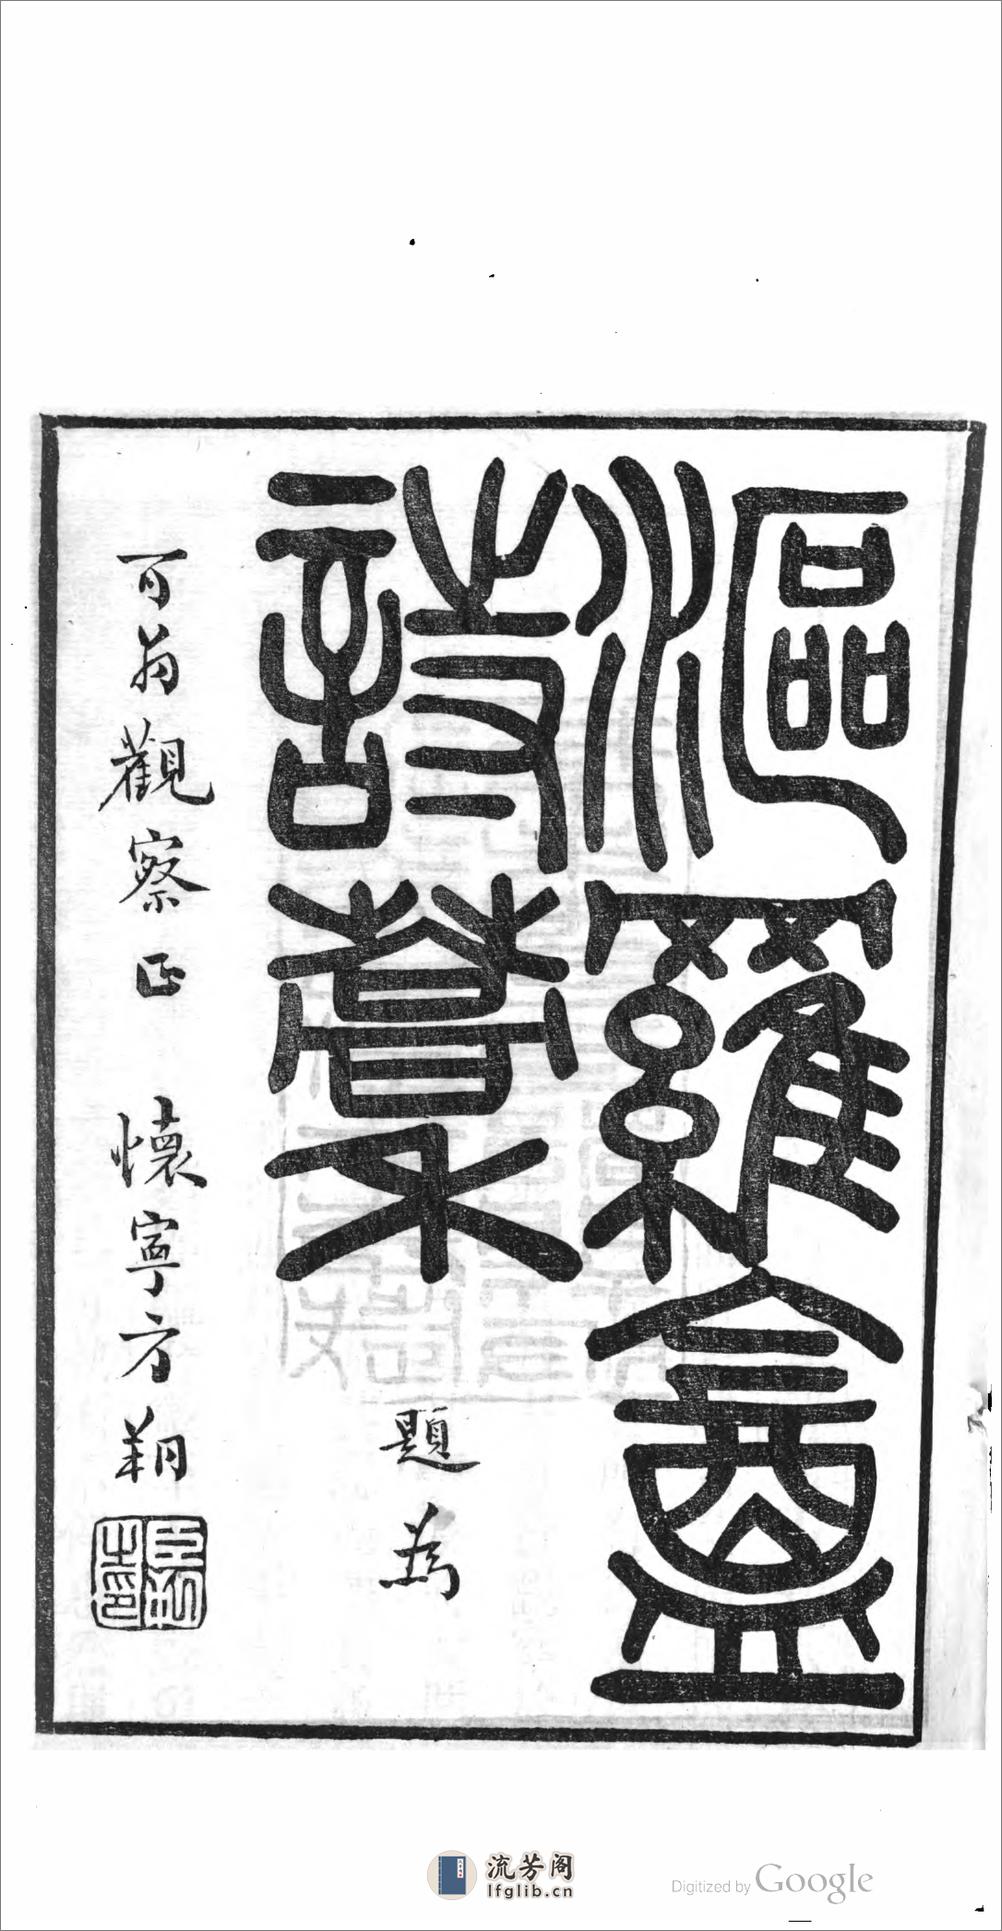 漚羅盦
詩藁
題為
可翁觀察正 懷寧方朔
流芳阁
lfglib.cn
Digitized by Google